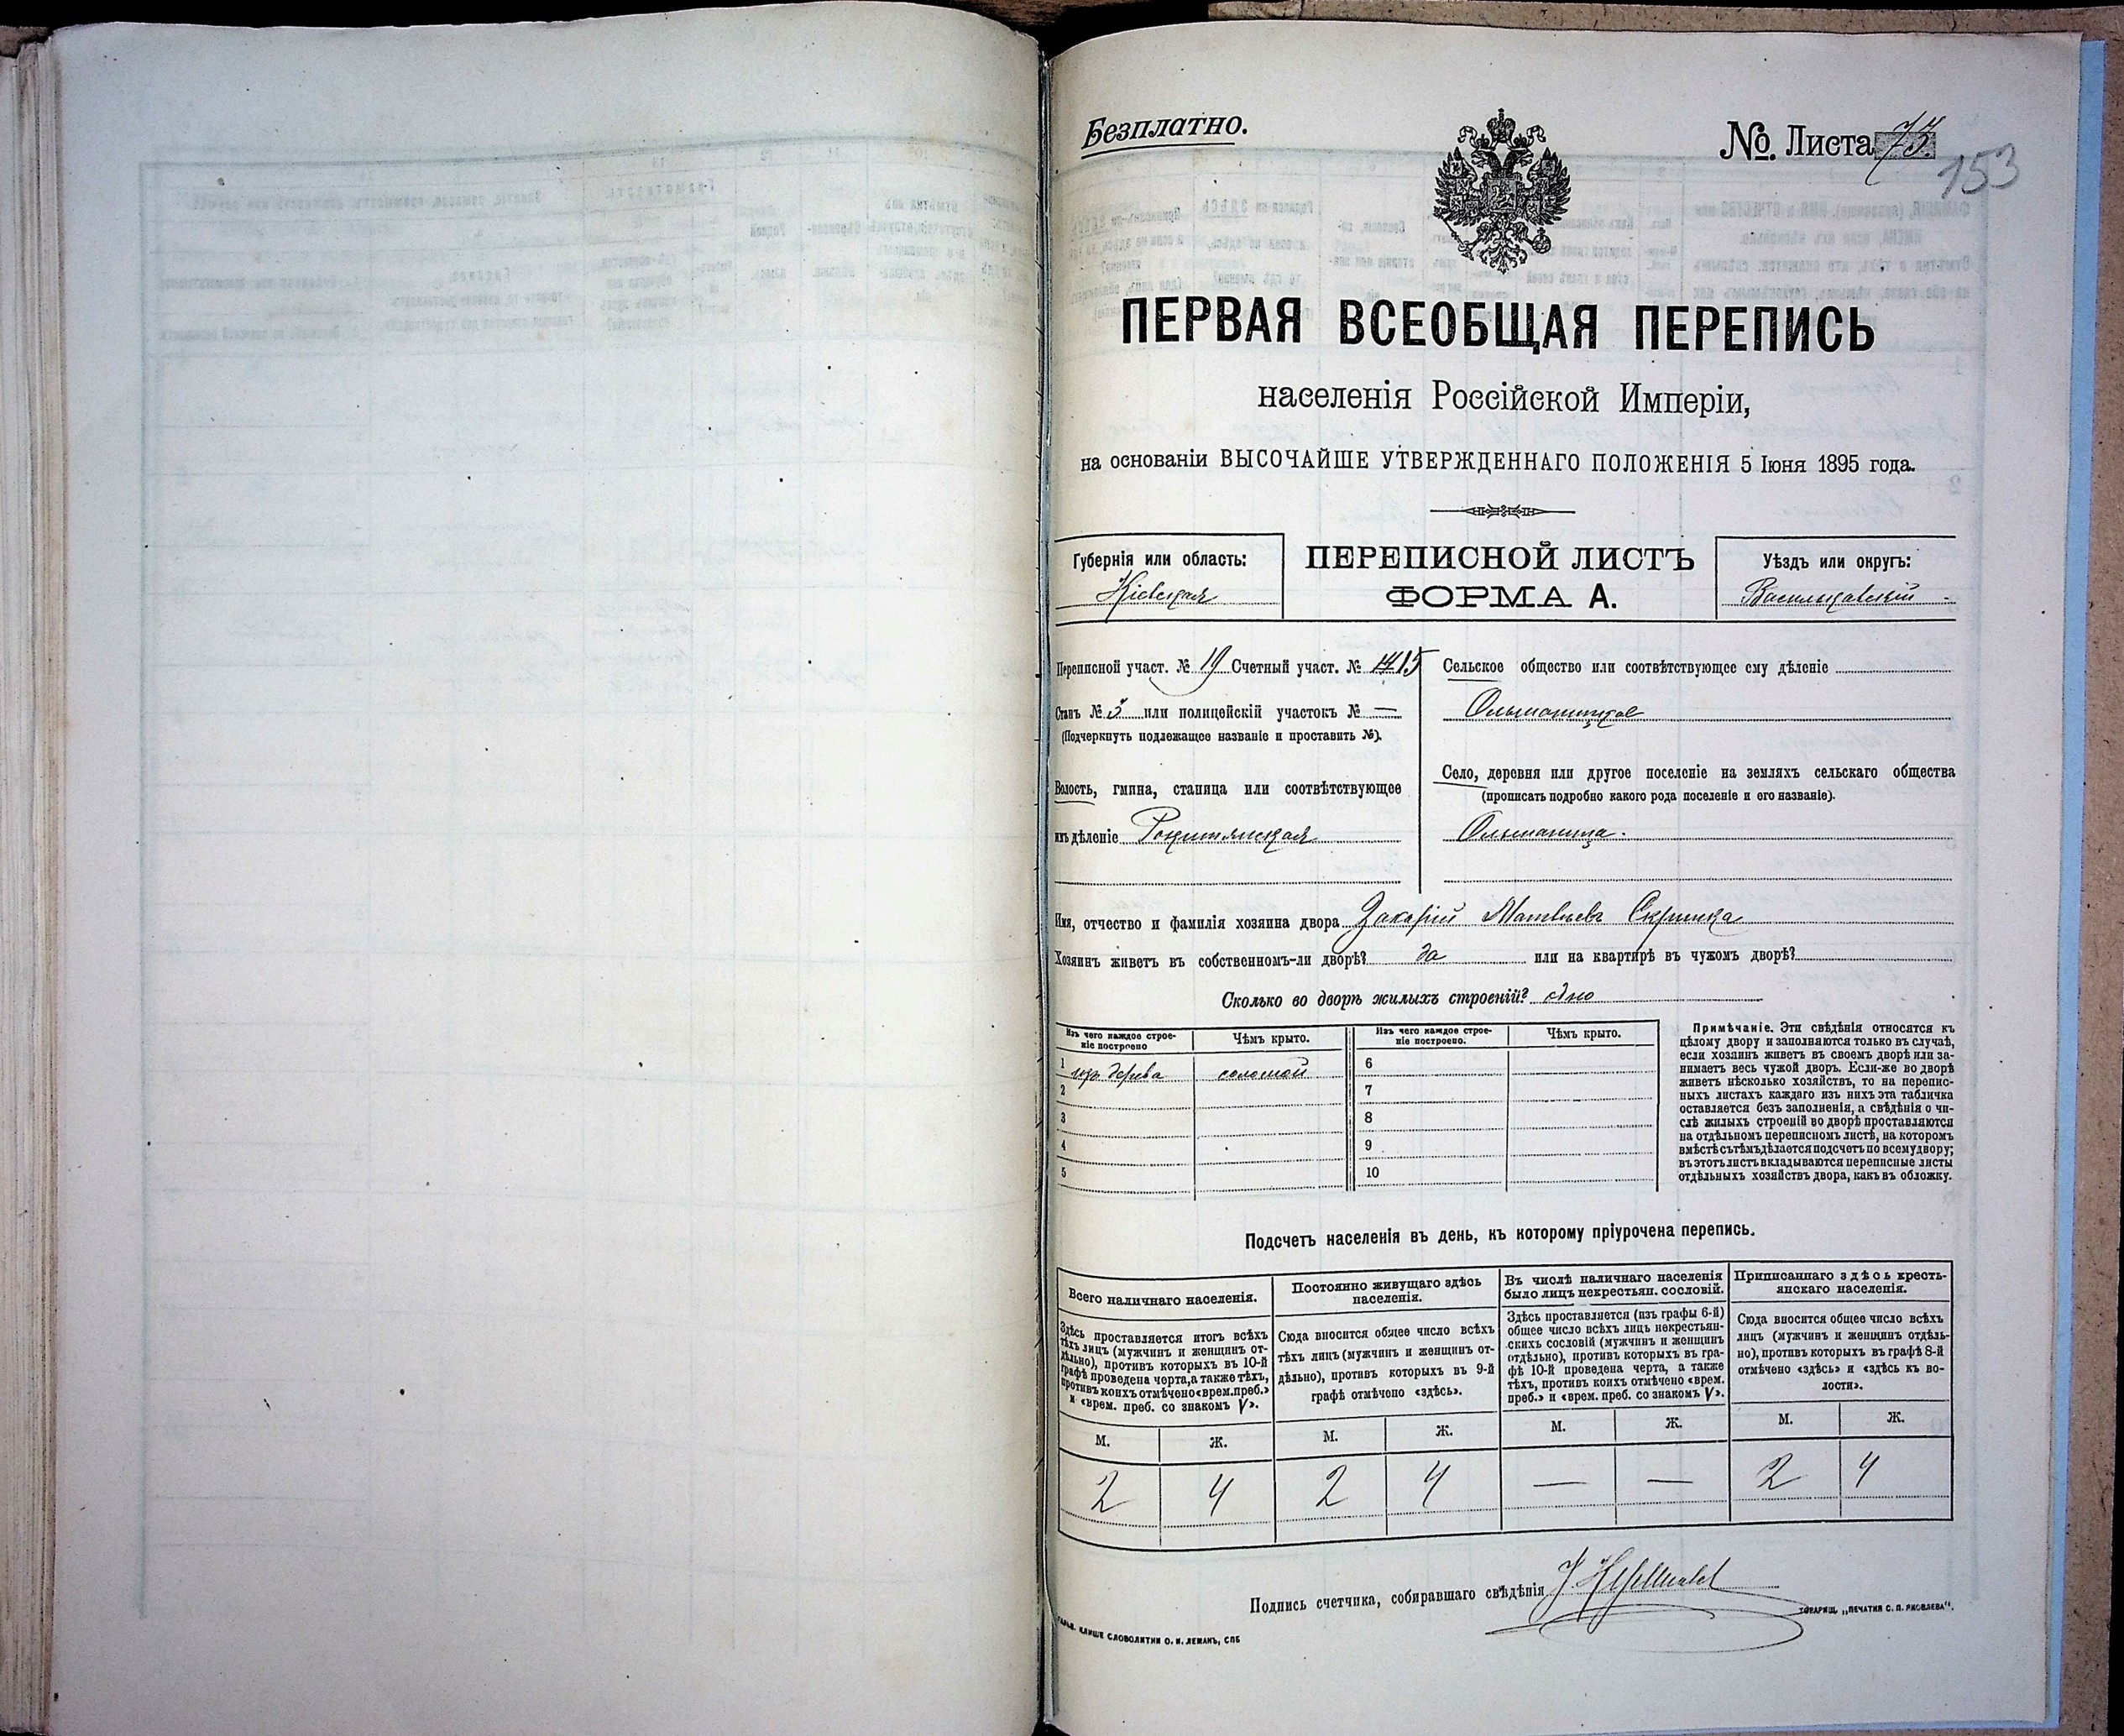 Безплатно.
№. Листа 75.
153
ПЕРВАЯ ВСЕОБЩАЯ ПЕРЕПИСЬ
населенія Россійской Имперіи,
на основаніи ВЫСОЧАЙШЕ УТВЕРЖДЕННАГО ПОЛОЖЕНІЯ 5 Іюня 1895 года.
Губернія или область:
Кіевская
ПЕРЕПИСНОЙ ЛИСТЪ
ФОРМА А.
Уѣздъ или округъ:
Васильковскій
Переписной участ. № 19 Счетный участ. № 15
Станъ № 3 или полицейскій участокъ № —
(Подчеркнуть подлежащее названіе и проставить №).
Волость, гмина, станица или соотвѣтствующее
имъ дѣленіе Рокитянская
Сельское общество или соотвѣтствующее ему дѣленіе
Ольшаницкое
Село, деревня или другое поселеніе на земляхъ сельскаго общества
(прописать подробно какого рода поселеніе и его названіе).
Ольшаница.
Имя, отчество и фамилія хозяина двора Захарій Матвѣевъ Скрипка
Хозяинъ живетъ въ собственномъ-ли дворѣ? да или на квартирѣ въ чужомъ дворѣ?
Сколько во дворѣ жилыхъ строеній? одно
Изъ чего каждое строе-
ніе построено
Чѣмъ крыто.
Изъ чего каждое строе-
ніе построено.
Чѣмъ крыто.
1 изъ дерева соломой 6
2 7
3 8
4 9
5 10
Примѣчаніе. Эти свѣдѣнія относятся къ
цѣлому двору и заполняются только въ случаѣ,
если хозяинъ живетъ въ своемъ дворѣ или за-
нимаетъ весь чужой дворъ. Если-же во дворѣ
живетъ нѣсколько хозяйствъ, то на перепис-
ныхъ листахъ каждаго изъ нихъ эта табличка
оставляется безъ заполненія, а свѣдѣнія о чи-
слѣ жилыхъ строеній во дворѣ проставляются
на отдѣльномъ переписномъ листѣ, на которомъ
вмѣстѣ съ тѣмъ дѣлается подсчетъ по всему двору;
въ этотъ листъ вкладываются переписные листы
отдѣльныхъ хозяйствъ двора, какъ въ обложку.
Подсчетъ населенія въ день, къ которому пріурочена перепись.
Всего наличнаго населенія.
Здѣсь проставляется итогъ всѣхъ
тѣхъ лицъ (мужчинъ и женщинъ от-
дѣльно), противъ которыхъ въ 10-й
графѣ проведена черта, а также тѣхъ,
противъ коихъ отмѣчено «врем. преб.»
и «врем. преб. со знакомъ V».
Постоянно живущаго здѣсь
населенія.
Сюда вносится общее число всѣхъ
тѣхъ лицъ (мужчинъ и женщинъ от-
дѣльно), противъ которыхъ въ 9-й
графѣ отмѣчено «здѣсь».
Въ числѣ наличнаго населенія
было лицъ некрестьян. сословій.
Здѣсь проставляется (изъ графы 6-й)
общее число всѣхъ лицъ некрестьян-
скихъ сословій (мужчинъ и женщинъ
отдѣльно), противъ которыхъ въ гра-
фѣ 10-й проведена черта, а также
тѣхъ, противъ коихъ отмѣчено «врем.
преб.» и «врем. преб. со знакомъ V».
Приписаннаго здѣсь кресть-
янскаго населенія.
Сюда вносится общее число всѣхъ
лицъ (мужчинъ и женщинъ отдѣль-
но), противъ которыхъ въ графѣ 8-й
отмѣчено «здѣсь» и «здѣсь къ во-
лости».
М. Ж. М. Ж. М. Ж. М. Ж.
2 4 2 4 — — 2 4
Подпись счетчика, собиравшаго свѣдѣнія
КЛИШЕ СЛОВОЛИТНИ О. И. ЛЕМАНЪ, СПБ
ТОВАРИЩ. „ПЕЧАТНЯ С. П. ЯКОВЛЕВА“.